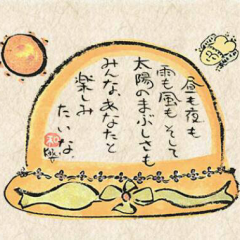 昼も夜も
雨も風もそして
太陽のまぶしさも
みんな、あなたと
楽しみ
たいな。